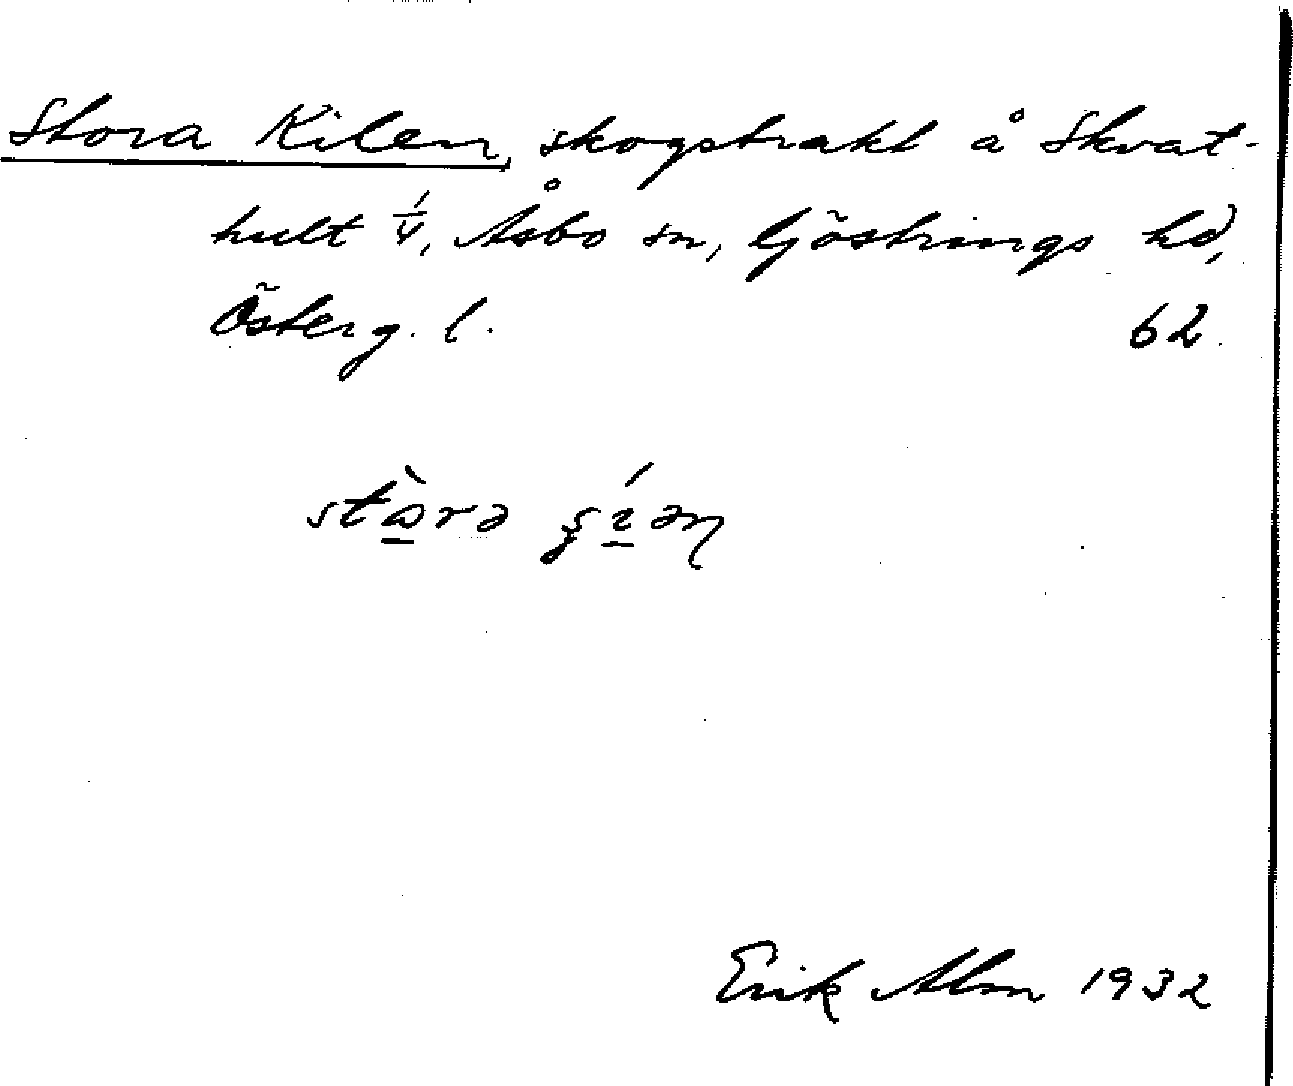 Stora Kilen, skogstrakt å Skvat-
hult 1/4, Åsbo sn, Göstrings hd,
Österg. l. 62.
Erik Alm 1932